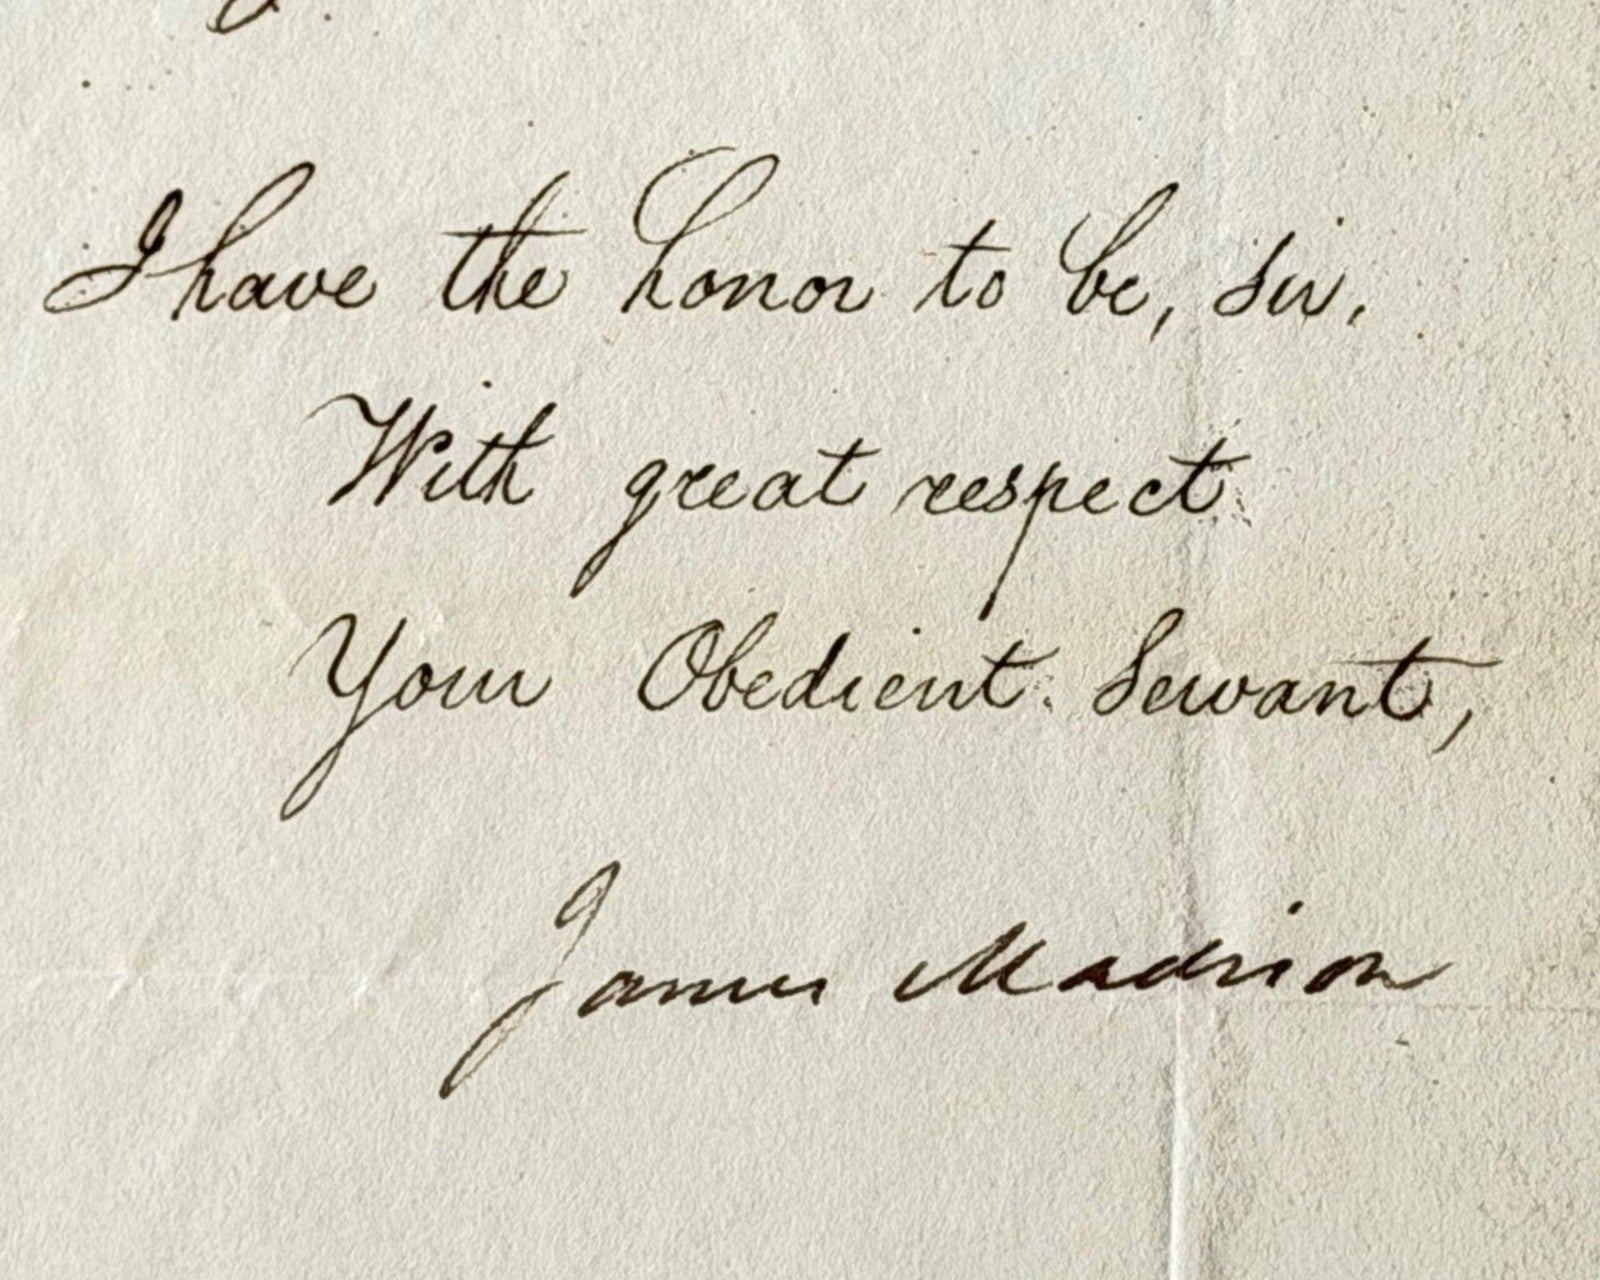 I have the honor to be, sir,
With great respect
Your Obedient Servant,
James Madison